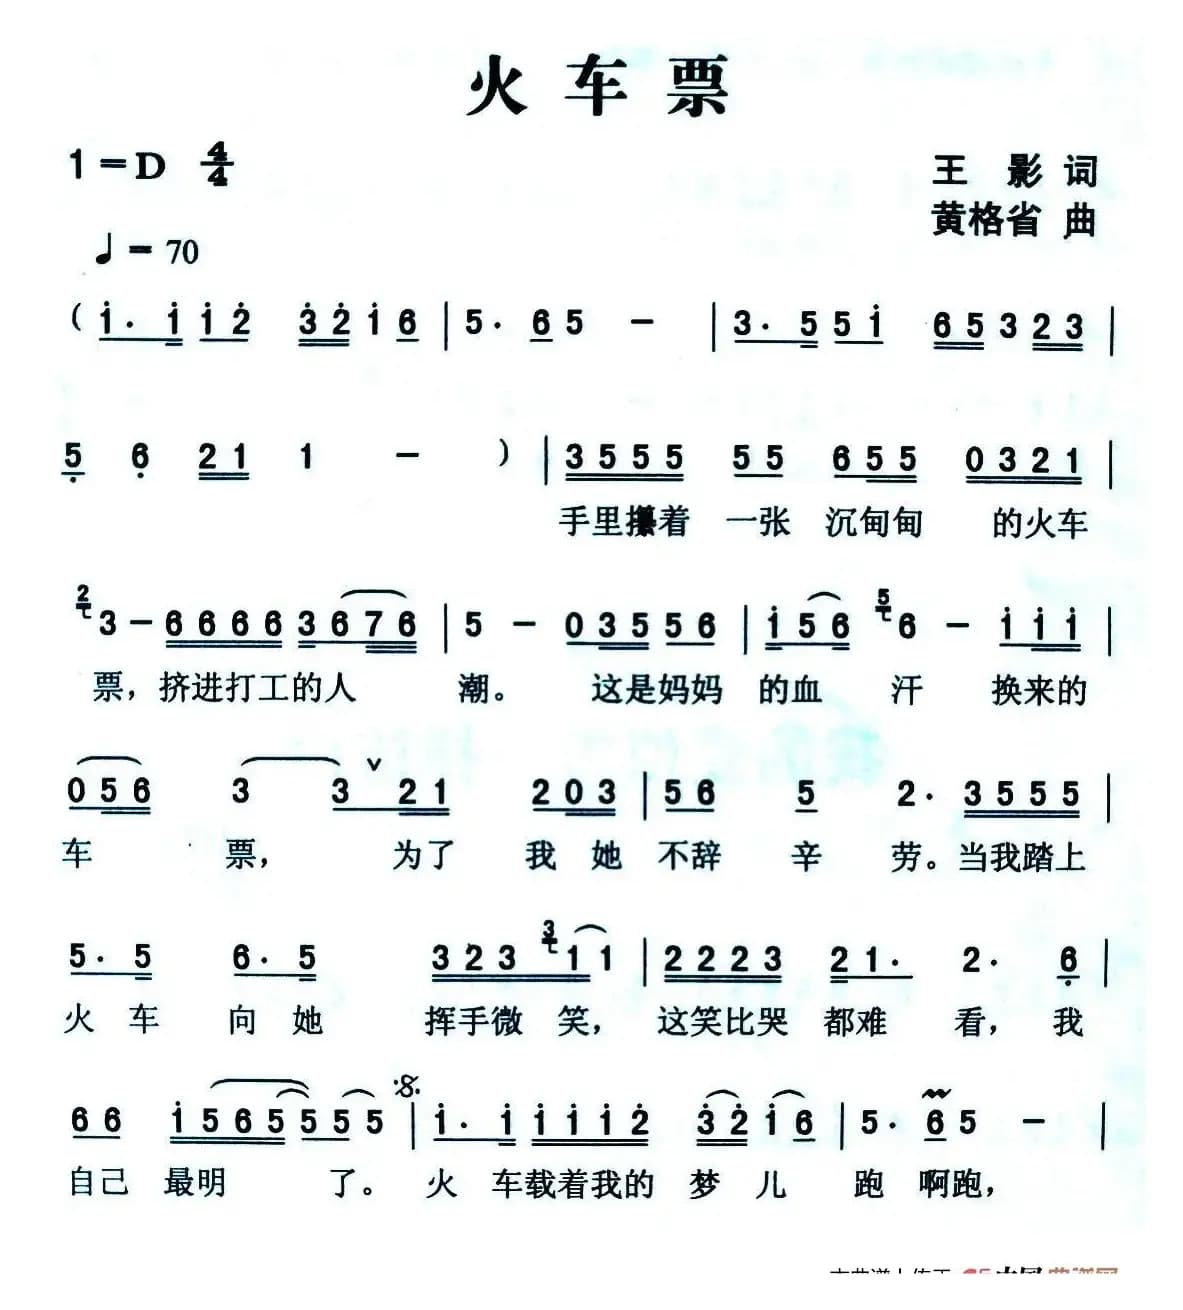 火车票
1=D 4/4
王 影 词
黄格省 曲
♩= 70
( 1· 1 1 2 3 2 1 6 | 5· 6 5 - | 3· 5 5 1 6 5 3 2 3 |
5 6 2 1 1 - ) | 3 5 5 5 5 5 6 5 5 0 3 2 1 |
手里攥着 一张 沉甸甸 的火车
2 3 - 6 6 6 6 3 6 7 6 | 5 - 0 3 5 5 5 6 | 1 5 6 5 6 - 1 1 1 |
票，挤进打工的人 潮。 这是妈妈 的血 汗 换来的
0 5 6 3 3 ∨ 2 1 2 0 3 | 5 6 5 2· 3 5 5 5 |
车 票， 为了 我 她 不辞 辛 劳。当我踏上
5· 5 6· 5 3 2 3 3 1 1 | 2 2 2 3 2 1· 2· 6 |
火 车 向 她 挥手微 笑， 这笑比哭 都难 看，我
6 6 1 5 6 5 5 5 5 𝄋 | 1· 1 1 1 1 2 3 2 1 6 | 5· 6 5 - |
自己 最明 了。 火 车载着我的 梦 儿 跑 啊跑，